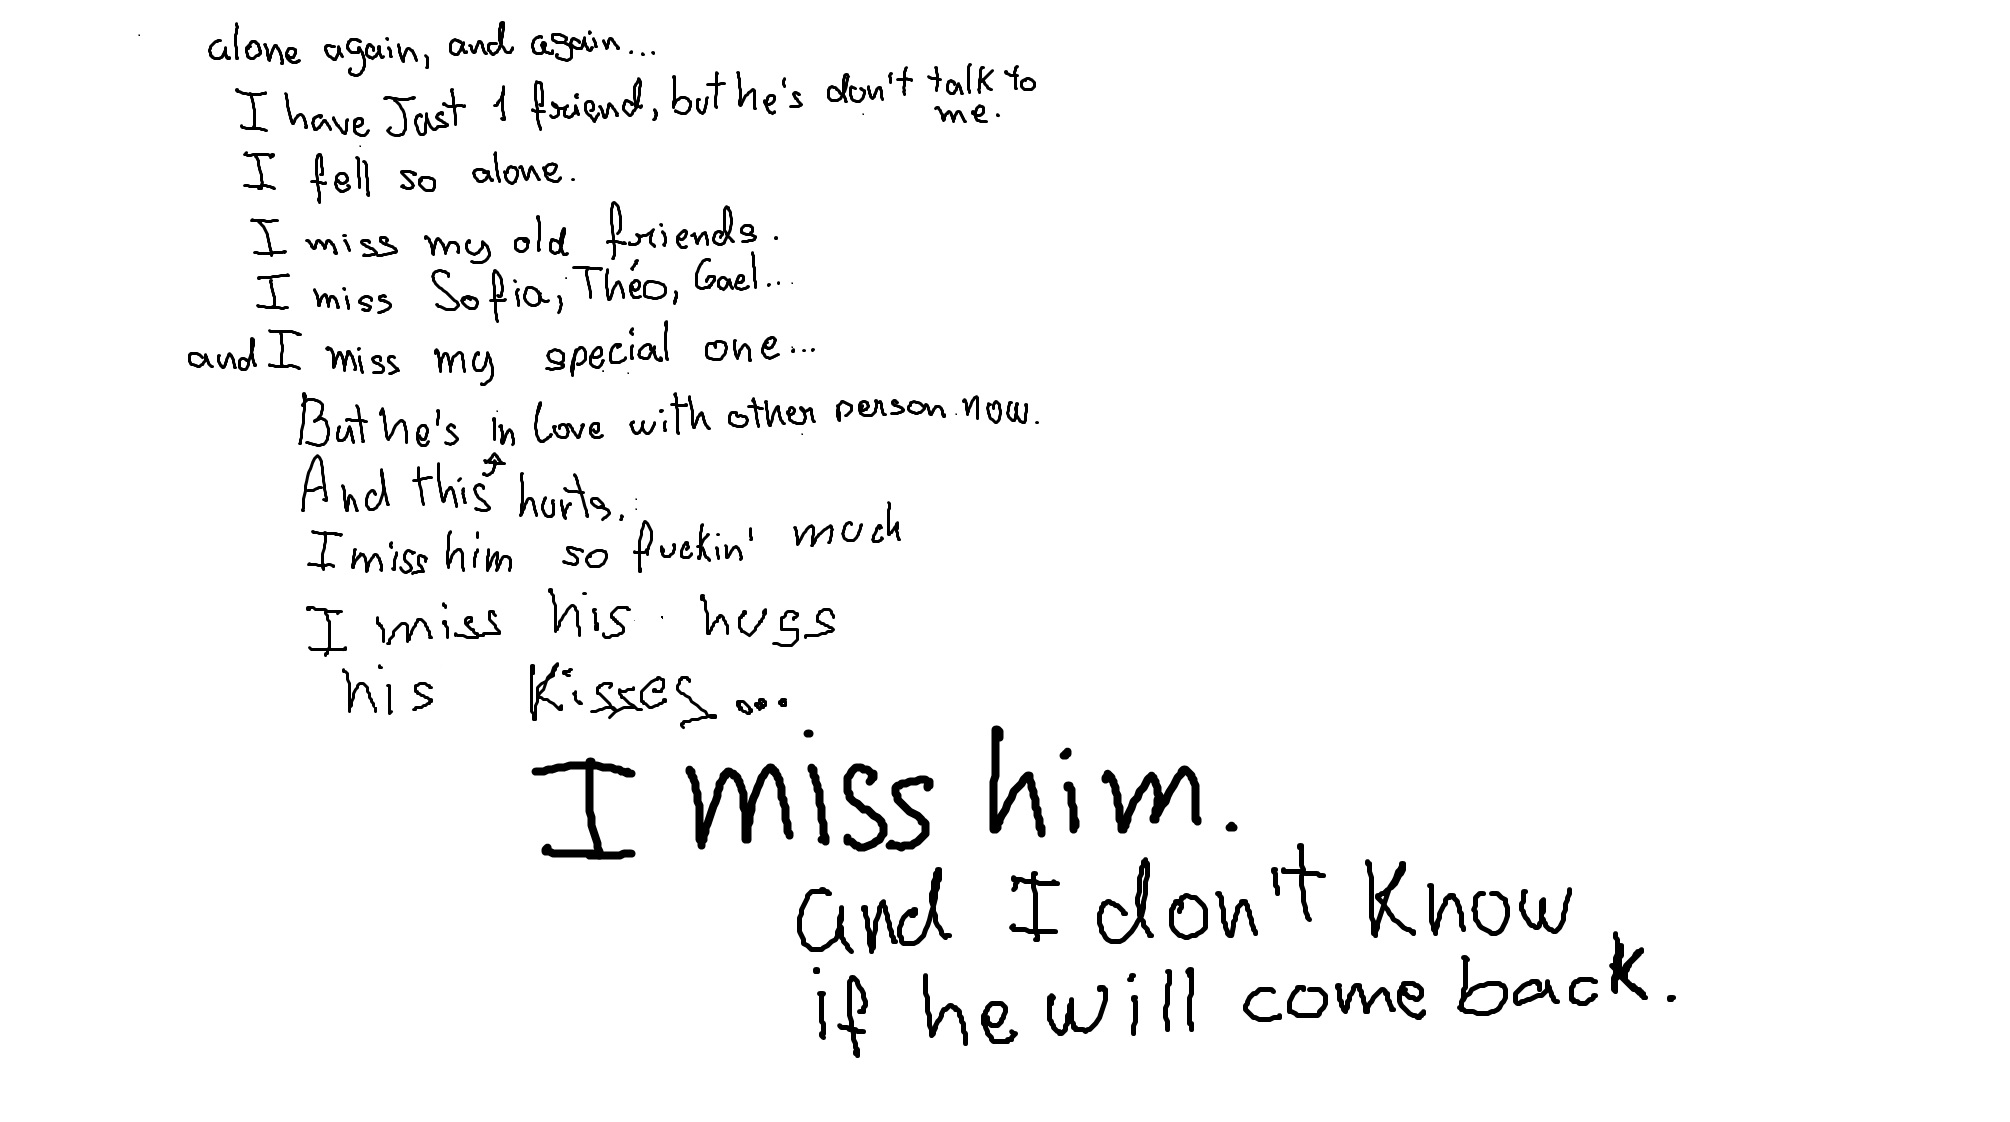 alone again, and again...
I have Just 1 friend, but he's don't talk to
me.
I fell so alone.
I miss my old friends.
I miss Sofia, Théo, Gael...
and I miss my special one...
But he's in love with other person now.
And this hurts.
I miss him so fuckin' much
I miss his hugs
his kisses...
I miss him.
and I don't know
if he will come back.